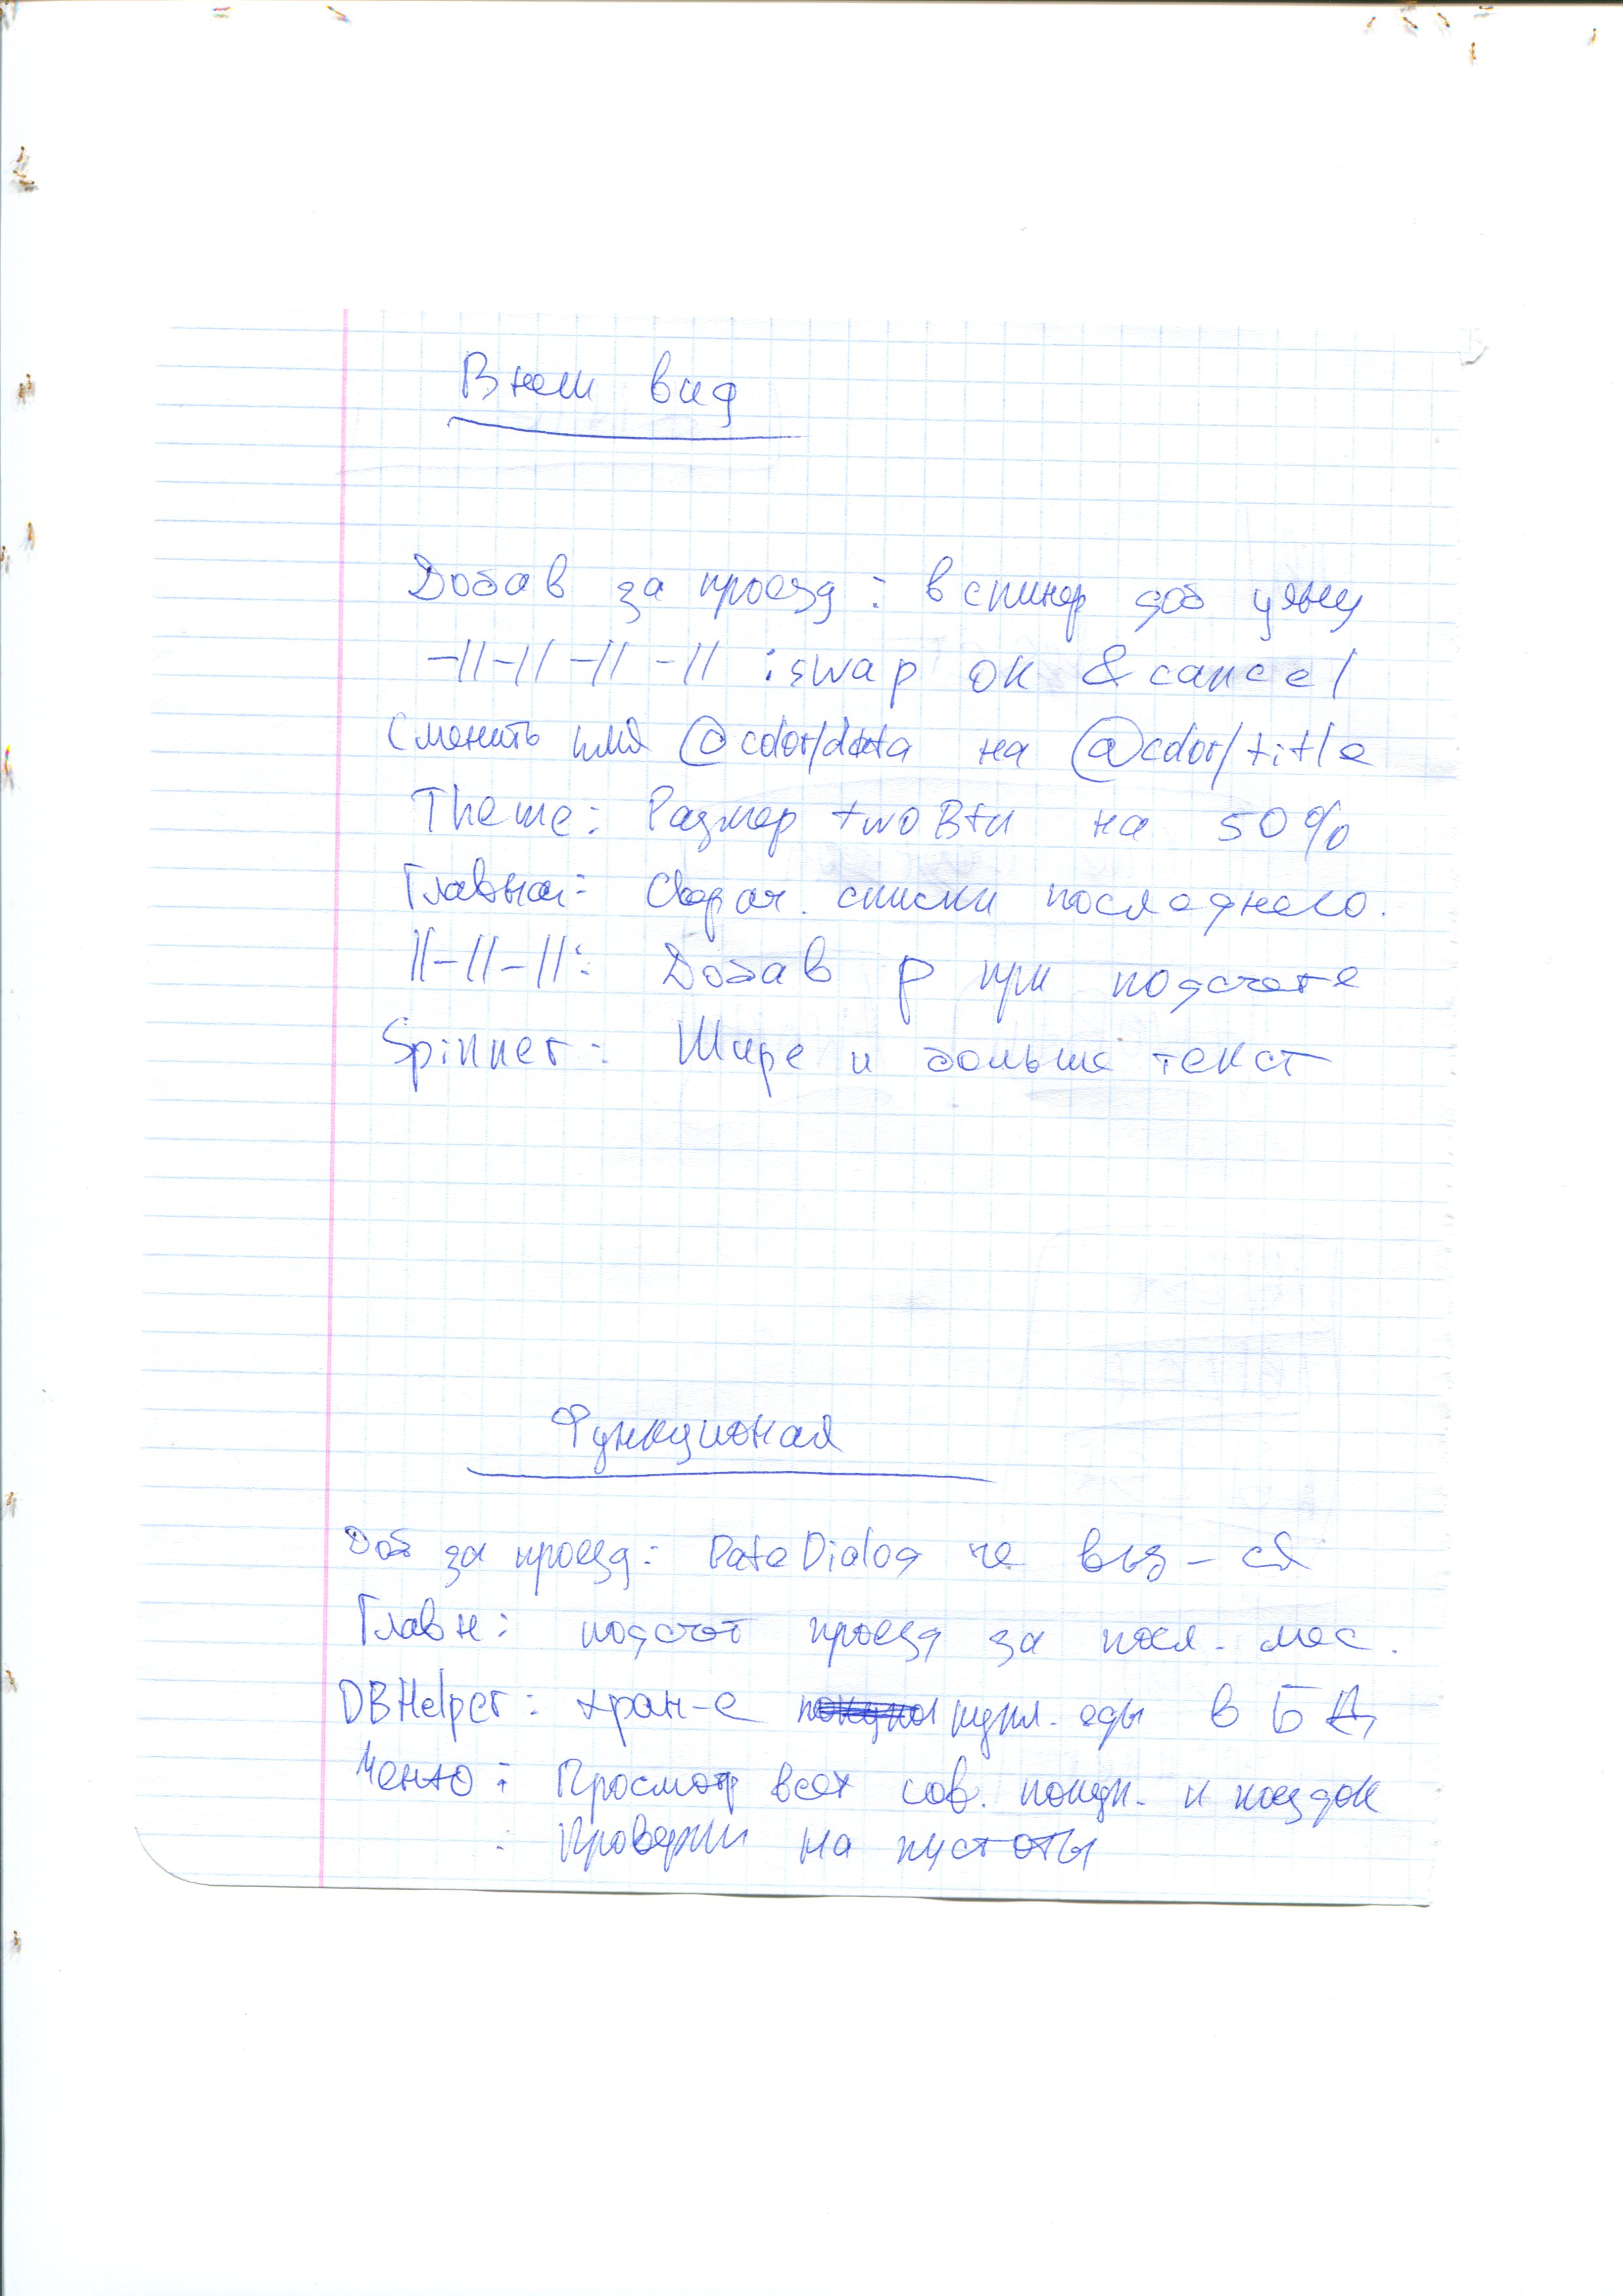 Внеш вид
Добав за проезд: в спинер доб цену
-//-//-//-// : swap ok & cancel
Сменить имя @color/data на @color/title
Theme: Размер twoBtn на 50%
Главная: Сворач. списки последнего.
//-//-//: Добав р при подсчете
Spinner: Шире и больше текст
Функционал
Доб за проезд: DateDialog не выз-ся
Главн: подсчёт проезд за посл. мес.
DBHelper: хран-е купл. еды в БД
Меню: Просмотр всех сов. покуп. и поездок
: Проверки на пустоты